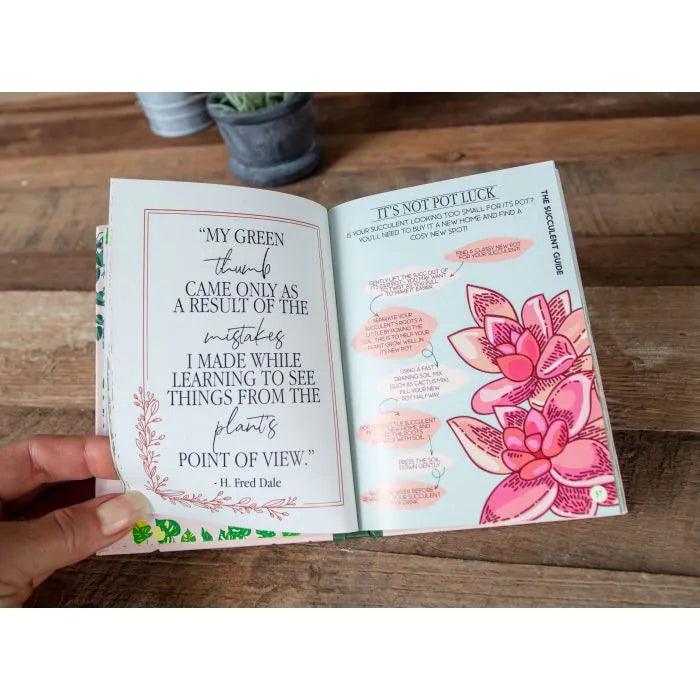 “MY GREEN
thumb
CAME ONLY AS
A RESULT OF THE
mistakes
I MADE WHILE
LEARNING TO SEE
THINGS FROM THE
plant's
POINT OF VIEW.”
- H. Fred Dale
IT'S NOT POT LUCK
IS YOUR SUCCULENT LOOKING TOO SMALL FOR ITS POT?
YOU'LL NEED TO BUY IT A NEW HOME AND FIND A
COSY NEW SPOT!
FIND A CLASSY NEW POT
FOR YOUR SUCCULENT!
GENTLY LIFT THE SUCC OUT OF
ITS OLD POT. YOU MAY WANT
TO TWIST AS YOU PULL
TO MAKE IT EASIER.
SEPARATE YOUR
SUCCULENT'S ROOTS A
LITTLE BY POKING THE
SOIL. THIS IS TO HELP YOUR
PLANT GROW WELL IN
ITS NEW POT.
USING A FAST
DRAINING SOIL MIX
(SUCH AS CACTUS MIX),
FILL YOUR NEW
POT HALFWAY.
SUCCULENT
NEW HOME AND
THE ROOTS
WITH SOIL.
PRESS THE SOIL
DOWN GENTLY.
WEEK BEFORE
YOUR SUCCULENT
A DRINK.
THE SUCCULENT GUIDE